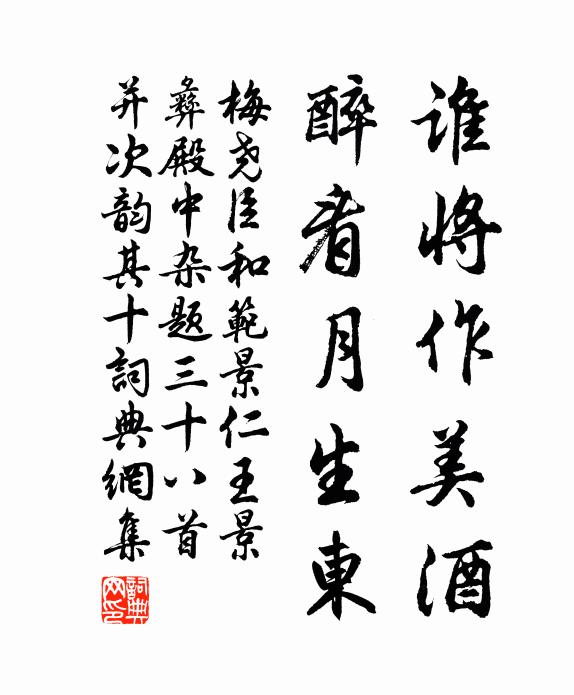 谁将作美酒
醉看月生東
梅尧臣和範景仁王景
彝殿中杂题三十八首
并次韵其十詞典網集
詞典
网印